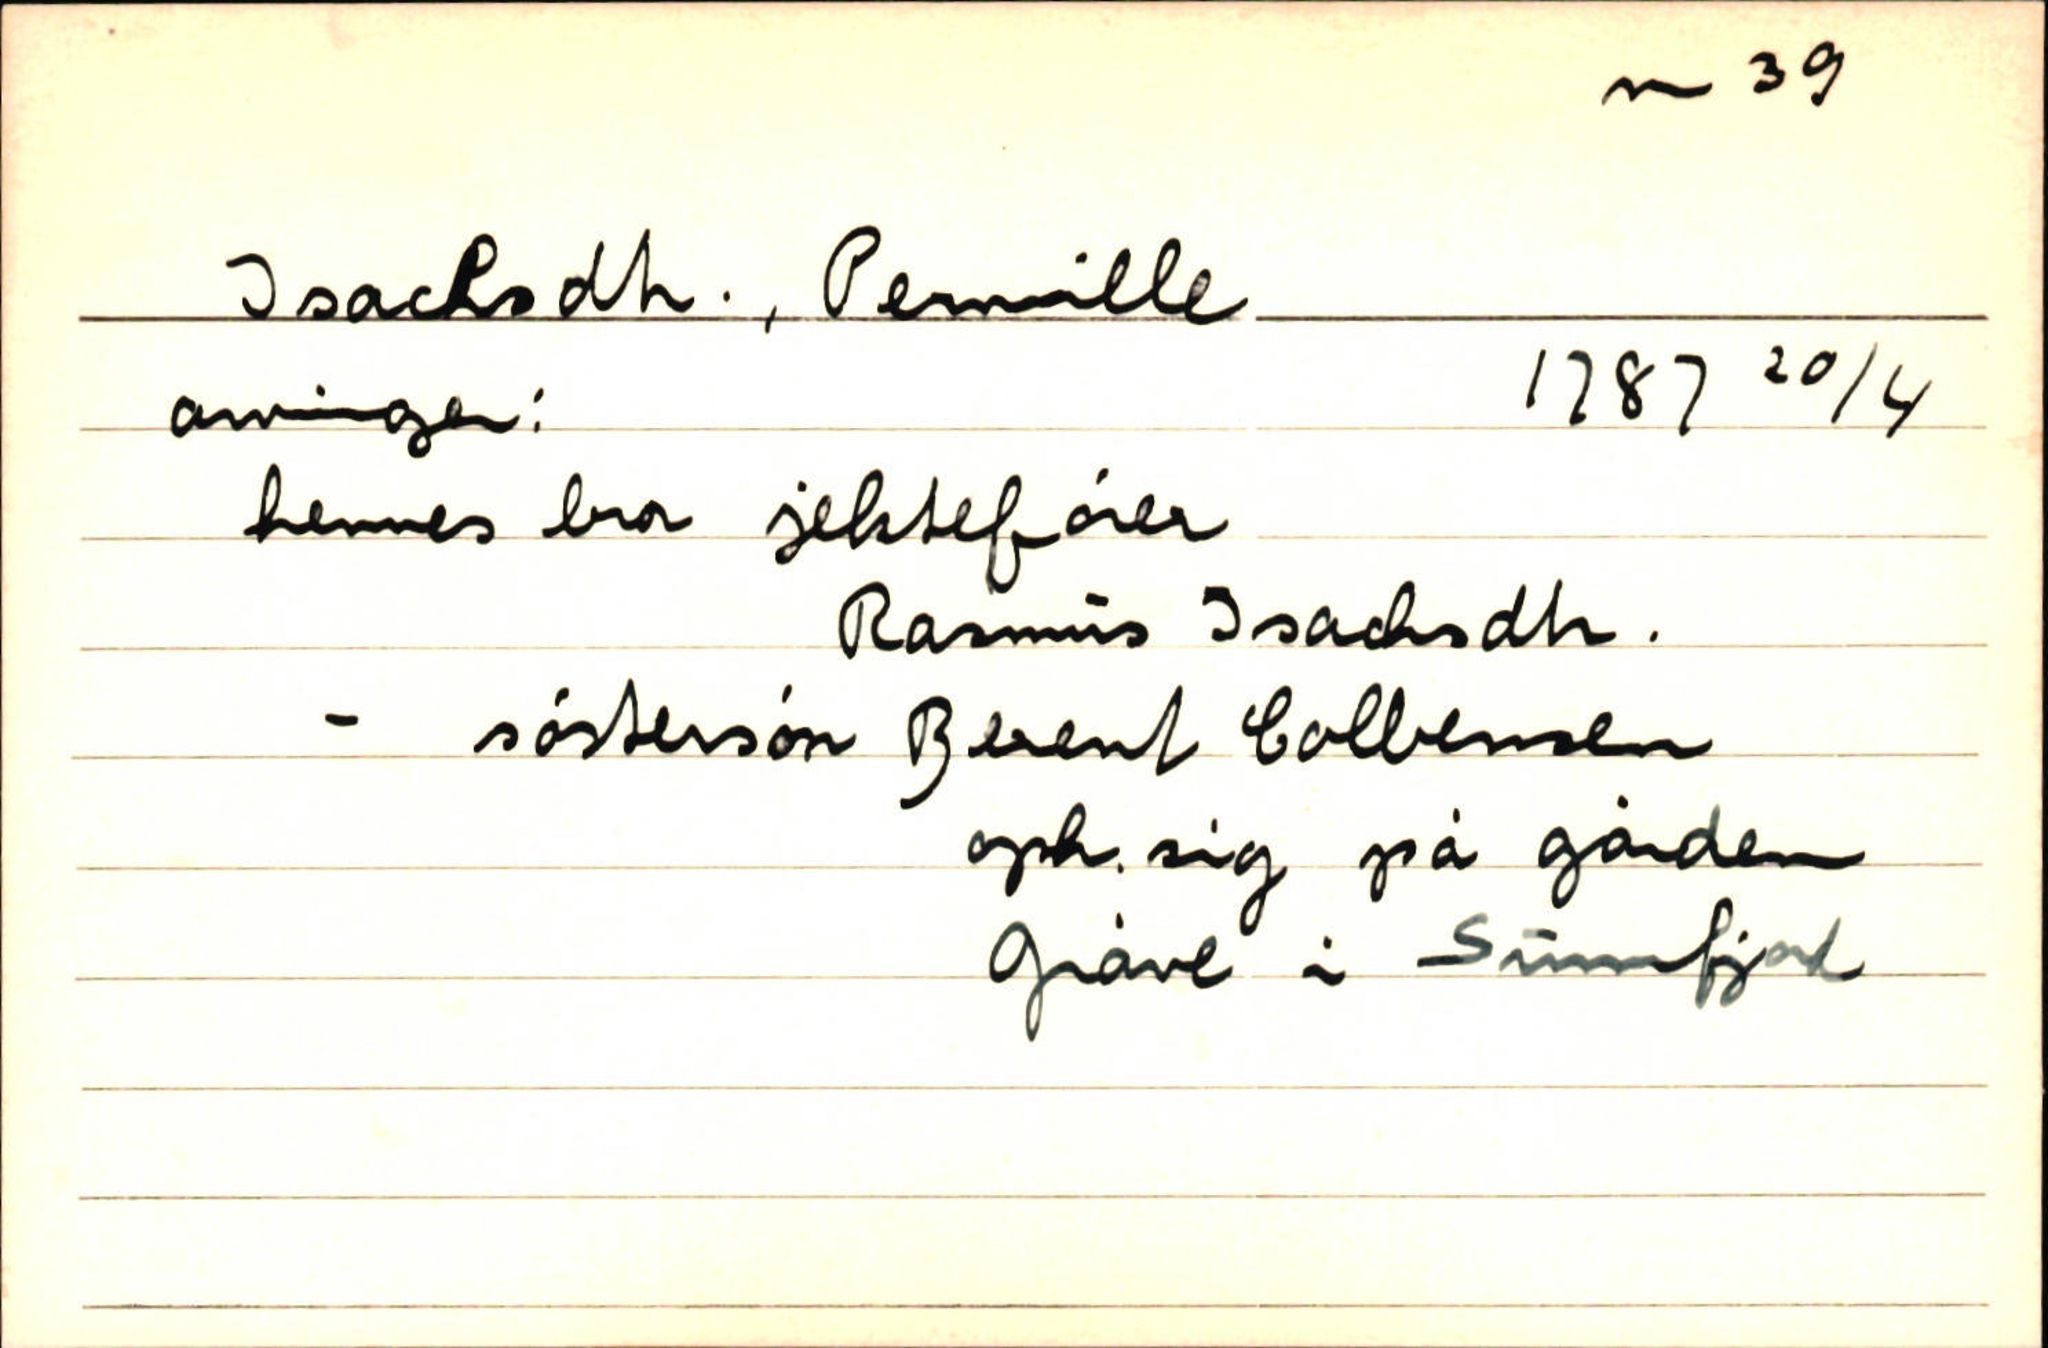 n 39
Isachsdtr., Pernille
arvinger: 1787 20/4
hennes bror jektefører
Rasmus Isachsdtr.
- søstersøn Berent Colbensen
oph. sig på gården
i Sunnfjord